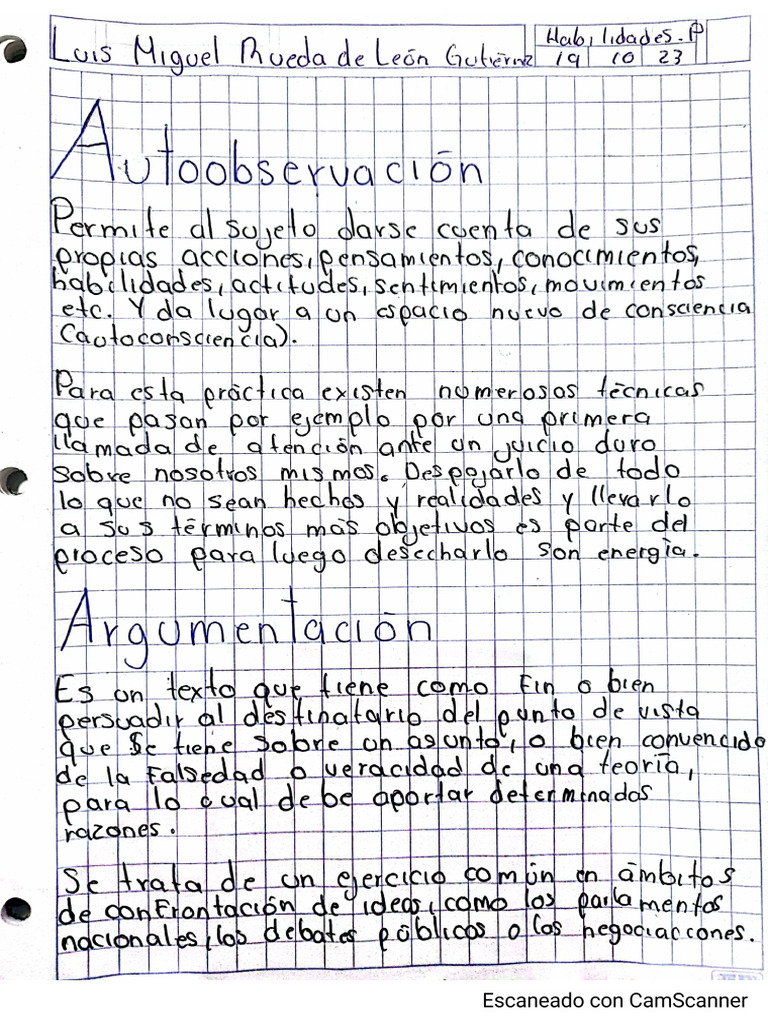 Luis Miguel Rueda de León Gutiérrez
Habilidades. P
19 10 23
Autoobservación
Permite al sujeto darse cuenta de sus
propias acciones, pensamientos, conocimientos,
habilidades, actitudes, sentimientos, movimientos
etc. Y da lugar a un espacio nuevo de consciencia
(autoconsciencia).
Para esta práctica existen numerosos técnicas
que pasan por ejemplo por una primera
llamada de atención ante un juicio duro
sobre nosotros mismos. Despojarlo de todo
lo que no sean hechos y realidades y llevarlo
a sus términos más objetivos es parte del
proceso para luego desecharlo son energía.
Argumentación
Es un texto que tiene como fin o bien
persuadir al destinatario del punto de vista
que se tiene sobre un asunto, o bien convencido
de la falsedad o veracidad de una teoría,
para lo cual debe aportar determinados
razones.
Se trata de un ejercicio común en ámbitos
de confrontación de ideas, como los parlamentos
nacionales, los debates públicos o las negociaciones.
Escaneado con CamScanner